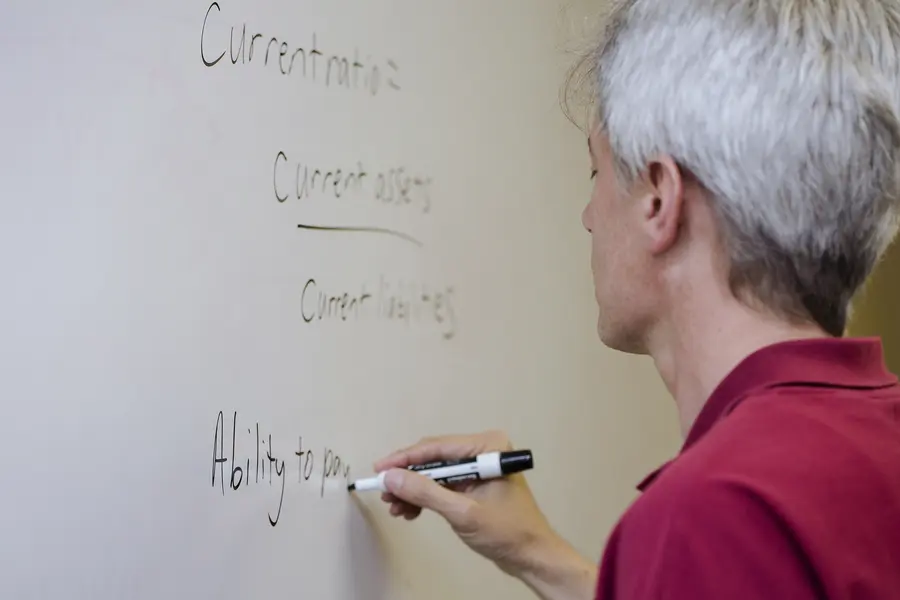 Current ratio =
Current assets
Current liabilities
Ability to pay